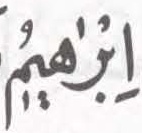 اِبْرٰهِيْمُ